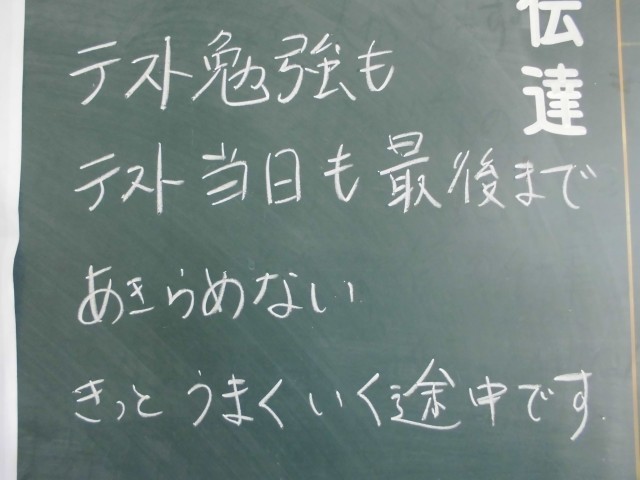 伝達
テスト勉強も
テスト当日も最後まで
あきらめない
きっとうまくいく途中です.